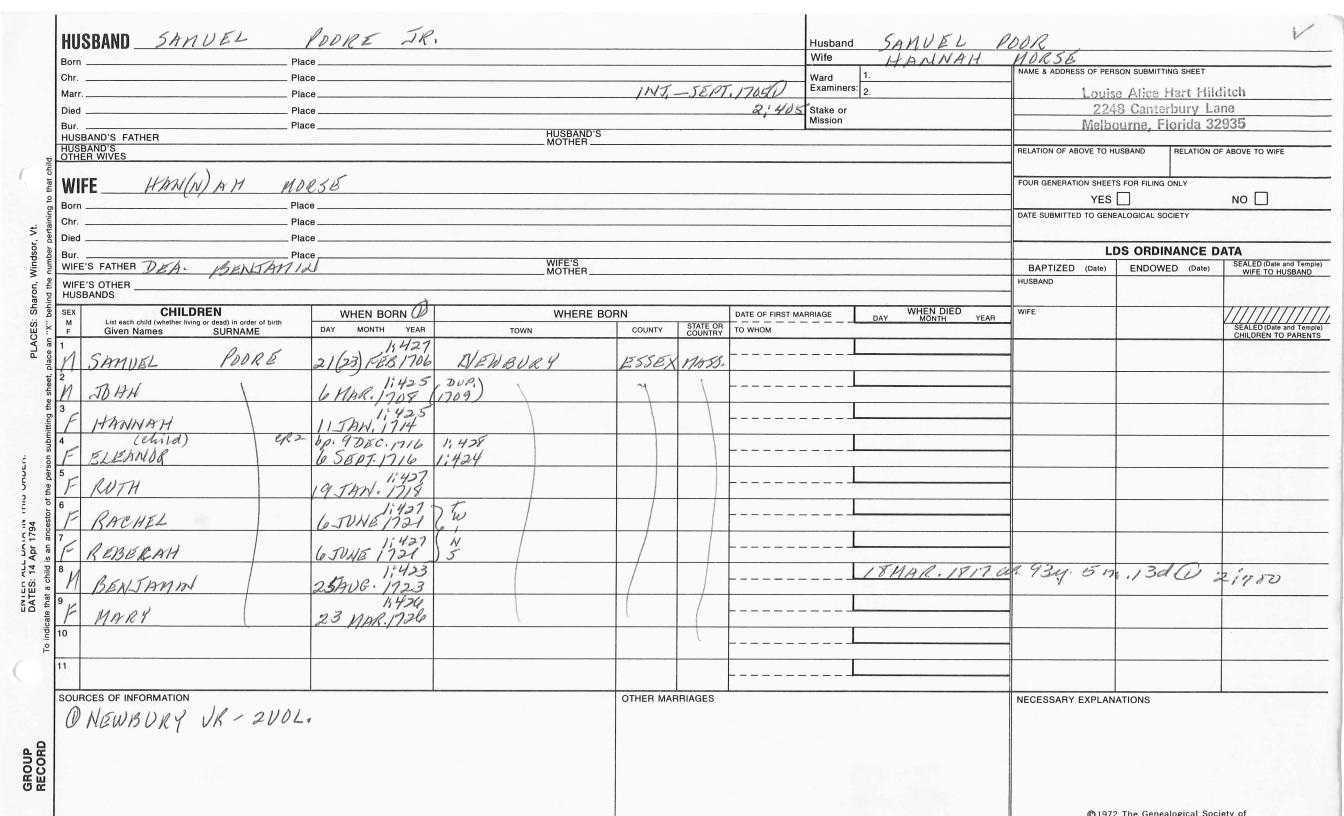 HUSBAND SAMUEL POORE JR.
Born Place
Chr. Place
Marr. Place INT.-SEPT. 1705 ①
Died Place 2;405
Bur. Place
HUSBAND'S FATHER HUSBAND'S MOTHER
HUSBAND'S OTHER WIVES
Husband SAMUEL POOR
Wife HANNAH MORSE
Ward Examiners: 1.
2.
Stake or Mission
NAME & ADDRESS OF PERSON SUBMITTING SHEET
Louise Alice Hart Hilditch
2248 Canterbury Lane
Melbourne, Florida 32935
RELATION OF ABOVE TO HUSBAND RELATION OF ABOVE TO WIFE
FOUR GENERATION SHEETS FOR FILING ONLY
YES NO
DATE SUBMITTED TO GENEALOGICAL SOCIETY
WIFE HAN(N)AH MORSE
Born Place
Chr. Place
Died Place
Bur. Place
WIFE'S FATHER DEA. BENJAMIN WIFE'S MOTHER
WIFE'S OTHER HUSBANDS
LDS ORDINANCE DATA
BAPTIZED (Date) ENDOWED (Date) SEALED (Date and Temple) WIFE TO HUSBAND
HUSBAND
WIFE
SEALED (Date and Temple) CHILDREN TO PARENTS
SEX M F
CHILDREN
List each child (whether living or dead) in order of birth
Given Names SURNAME
WHEN BORN ①
DAY MONTH YEAR
WHERE BORN
TOWN COUNTY STATE OR COUNTRY
DATE OF FIRST MARRIAGE
TO WHOM
WHEN DIED
DAY MONTH YEAR
1 1;427
M SAMUEL POORE 21(23) FEB 1706 NEWBURY ESSEX MASS.
2 1;425 (DUP.
M JOHN 6 MAR. 1708 1709)
3 1;425
F HANNAH 11 JAN. 1714
4 (child) CR2 bp. 9 DEC. 1716 1;428
F ELEANOR 6 SEPT. 1716 1;424
5 1;427
F RUTH 19 JAN. 1718
6 1;427
F RACHEL 6 JUNE 1721 TWINS
7 1;427
F REBECAH 6 JUNE 1721
8 1;423 18 MAR. 1817 a. 93y. 5m. 13d ① 2;700
M BENJAMIN 25 AUG. 1723
9 1;426
F MARY 23 MAR. 1726
10
11
SOURCES OF INFORMATION
① NEWBURY VR - 2VOL.
OTHER MARRIAGES
NECESSARY EXPLANATIONS
©1972 The Genealogical Society of
PLACES: Sharon, Windsor, Vt.
ENTER ALL DATA IN THIS ORDER:
DATES: 14 Apr 1794
To indicate that a child is an ancestor of the person submitting the sheet, place an "X" behind the number pertaining to that child.
GROUP
RECORD